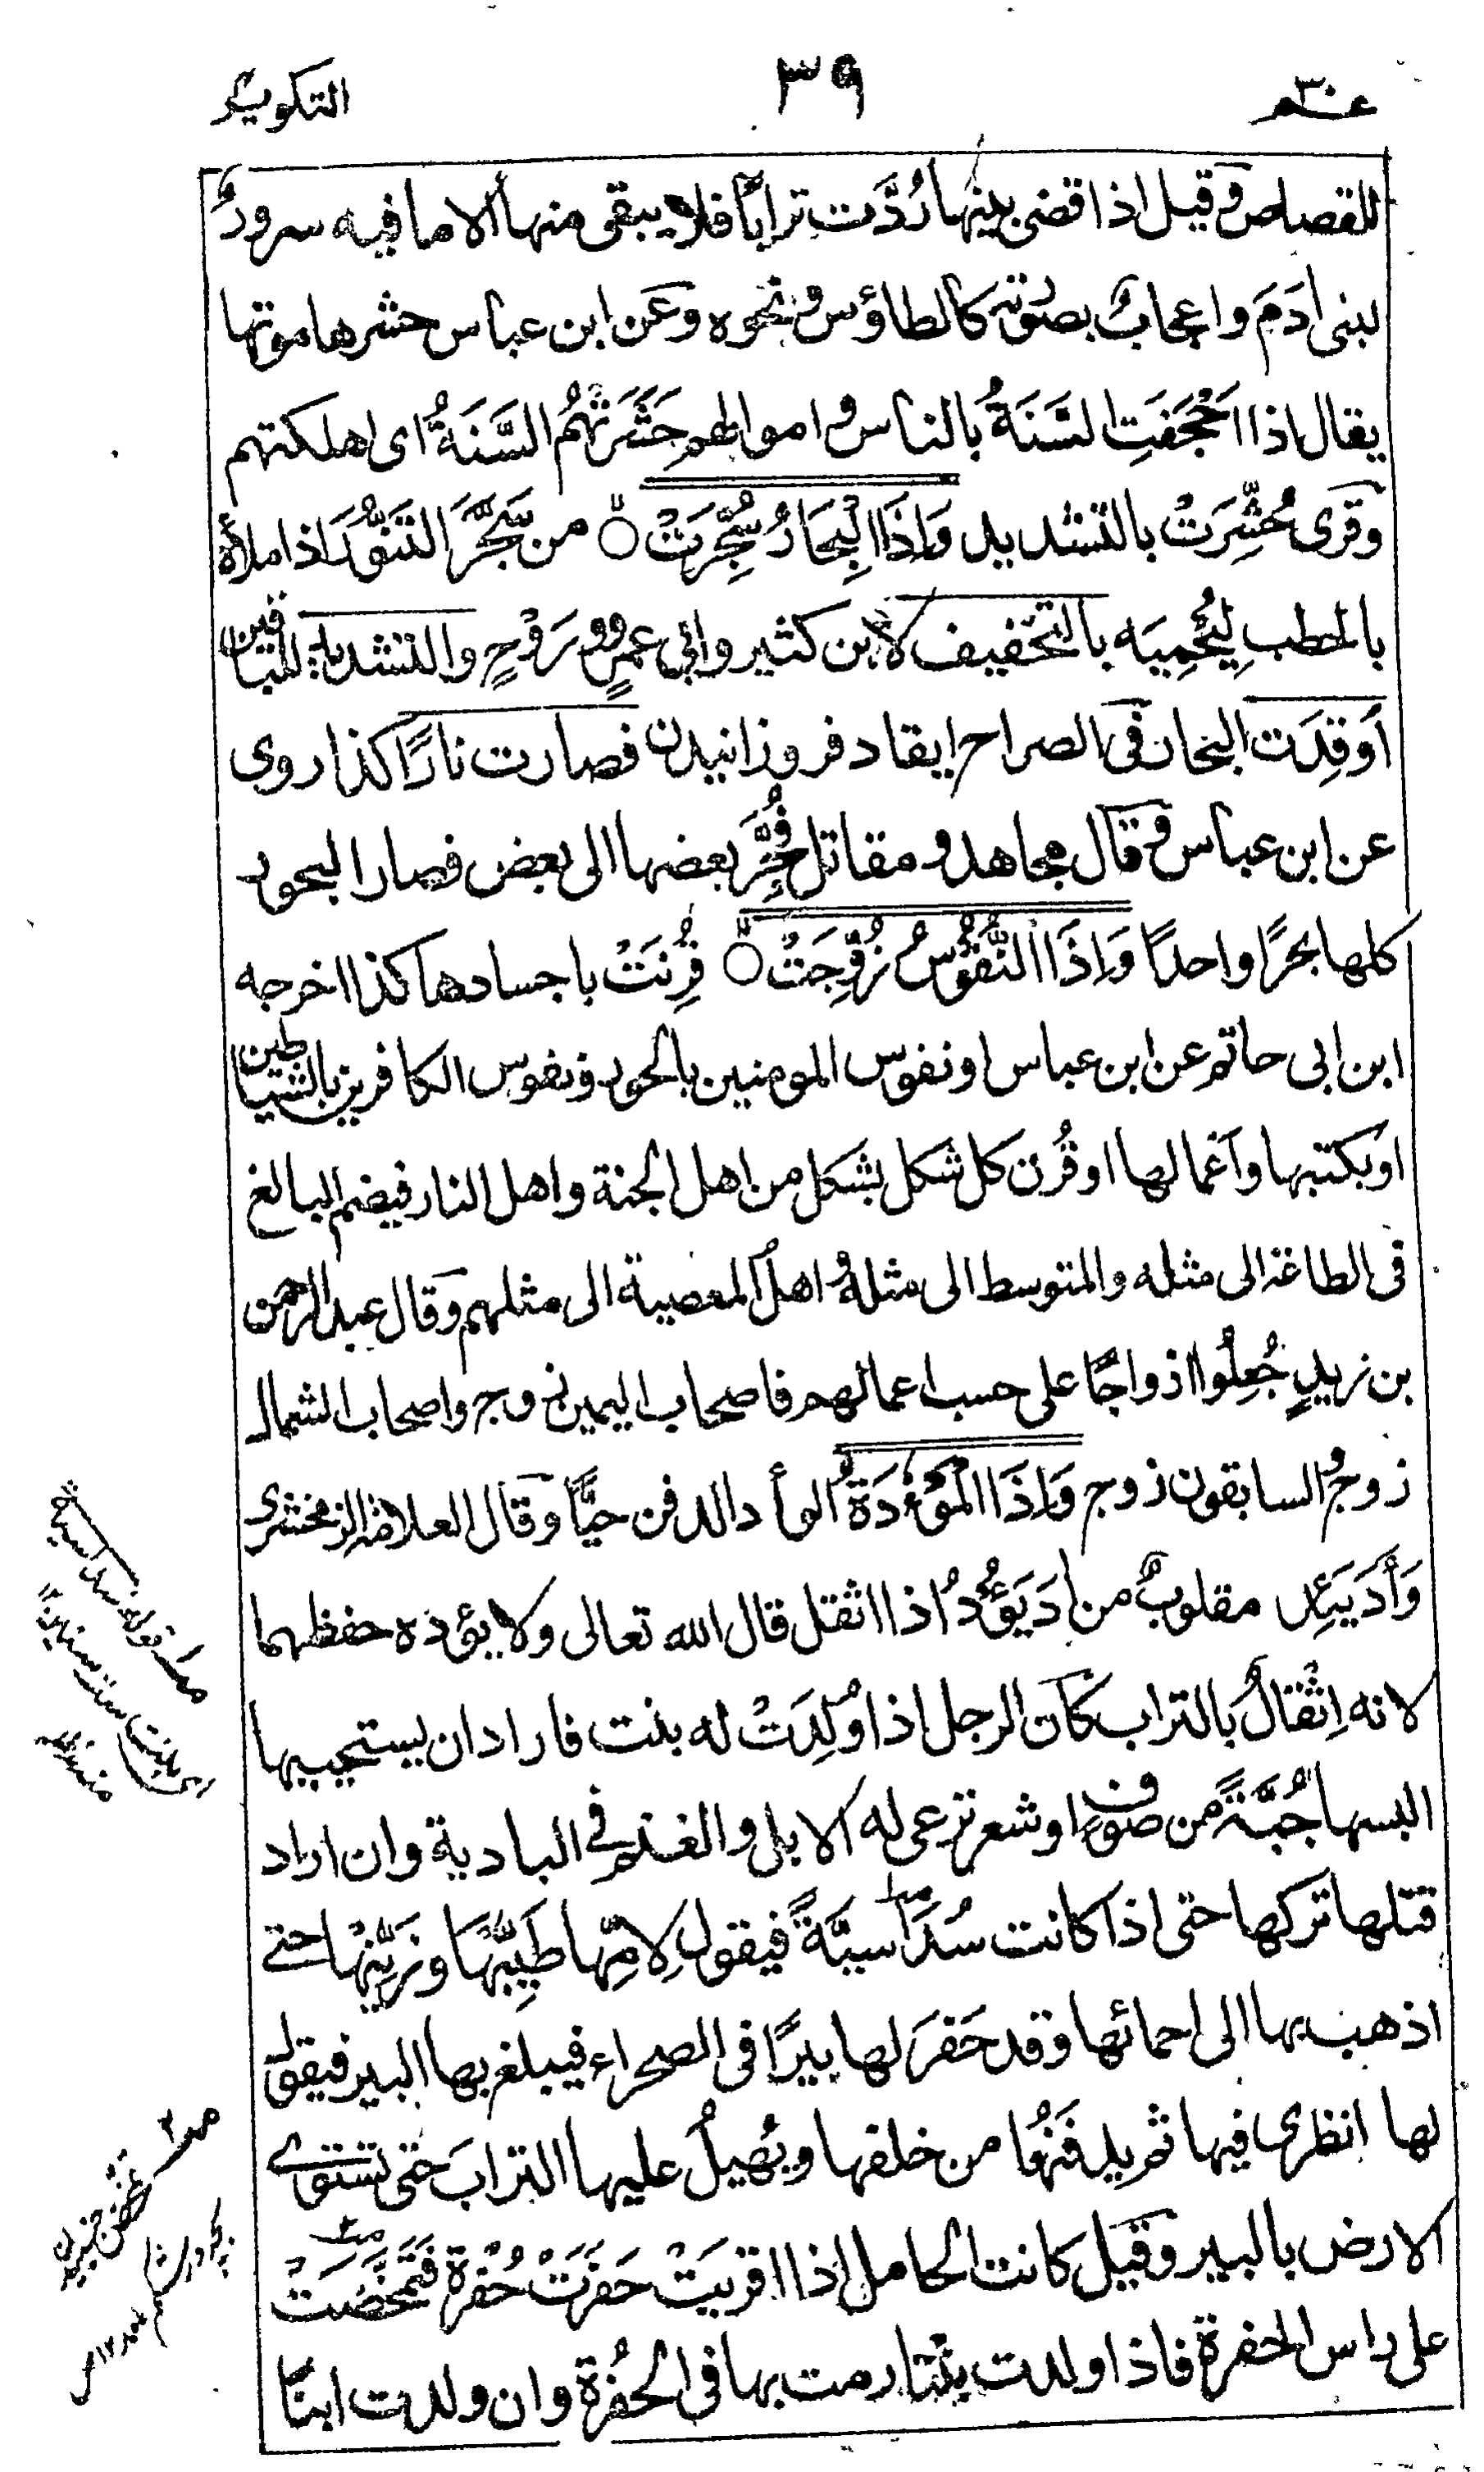 عم ٣٠
٣٩
التكوير
للقصاص وقيل اذا قضى بينها رُدَّت ترابًا فلا يبقى منها الا ما فيه سرورٌ
لبنى ادَمَ واعجابٌ بصوتِه كالطاؤس ونحوه وعَن ابن عباس حشرها موتها
يقال اذا اَحْجَفَتِ السَّنَةُ بالناس واموالهم حَشَرَتْهُم السَّنَةُ اى اهلكتهم
وقرى حُشِّرَتْ بالتشديد وَاِذَا الْبِحَارُ سُجِّرَتْ من سَجَّرَ التَنُّوْرَ اذا ملأه
بالحطبِ لِيُحْمِيَه بالتخفيف لابن كثير وابى عمرٍو ورَوْحٍ والتشديد للباقين
اَوقِدَت البخار فى الصراح ايقاد فروزانيدن فصارت نارًا كذا روى
عن ابن عباس وقال مجاهد ومقاتل فُجِّرَ بعضها الى بعض فصار البحور
كلها بحرًا واحدًا وَاِذَا النُّفُوْسُ زُوِّجَتْ قُرِنَتْ باجسادها كذا اخرجه
ابن ابى حاتم عن ابن عباس او نفوس المومنين بالحور ونفوس الكافرين بالشياطين
او بكتبها واَعْمالها او قُرِن كل شكل بشكل من اهل الجنة واهل النار فيضم البالغ
فى الطاعة الى مثله والمتوسط الى مثله واهلُ المعصية الى مثلهم وقال عبد الرحمن
بن زيدٍ جُعِلُوا ازواجًا على حسب اعمالهم فاصحاب اليمين زوج واصحاب الشمال
زوج والسابقون زوج وَاِذَا الْمَوْءٗدَةُ الوأد الدفن حيًّا وقال العلامة الزمخشرى
وَأدَ يَئِد مقلوبٌ من ادَ يَؤُدُ اذا اثقل قال الله تعالى ولا يؤده حفظهما
لانه اِثْقالٌ بالتراب كان الرجل اذا وُلِدَتْ له بنت فاراد ان يستحييها
البسها جُبَّةً من صوف او شعر ترعى له الابل والغنم فى البادية وان اراد
قتلها تركها حتى اذا كانت سُدَاسيَّةً فيقول لِامِّها طَيِّبِيْهَا وزَيِّنِيْها حتى
اذهب بها الى احمائها وقد حَفَرَ لها بيرًا فى الصحراء فيبلغ بها البير فيقول
لها انظرى فيها ثم يدفَعُها من خلفها ويُهيلُ عليها الترابَ حتى تستوى
الارض بالبير وقيل كانت الحامل اذا اقربَتْ حَفَرَتْ حُفرة فَتَمَخَّضَتْ
على راس الحفرة فاذا ولدت بنتا رمت بها فى الحُفرة وان ولدت ابنًا